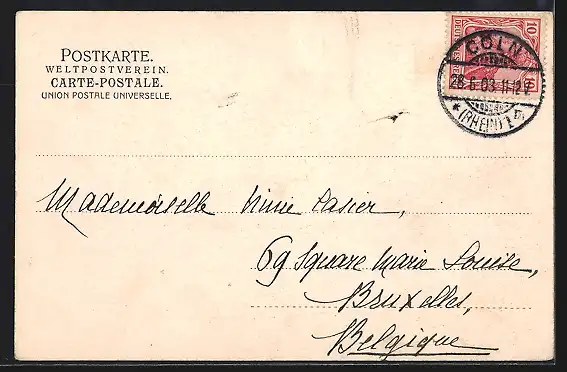 POSTKARTE.
WELTPOSTVEREIN.
CARTE-POSTALE.
UNION POSTALE UNIVERSELLE.
10
CÖLN
28.6.03.11-12V
* (RHEIN) 1
Mademoiselle
69 Square Marie Louise,
Bruxelles,
Belgique